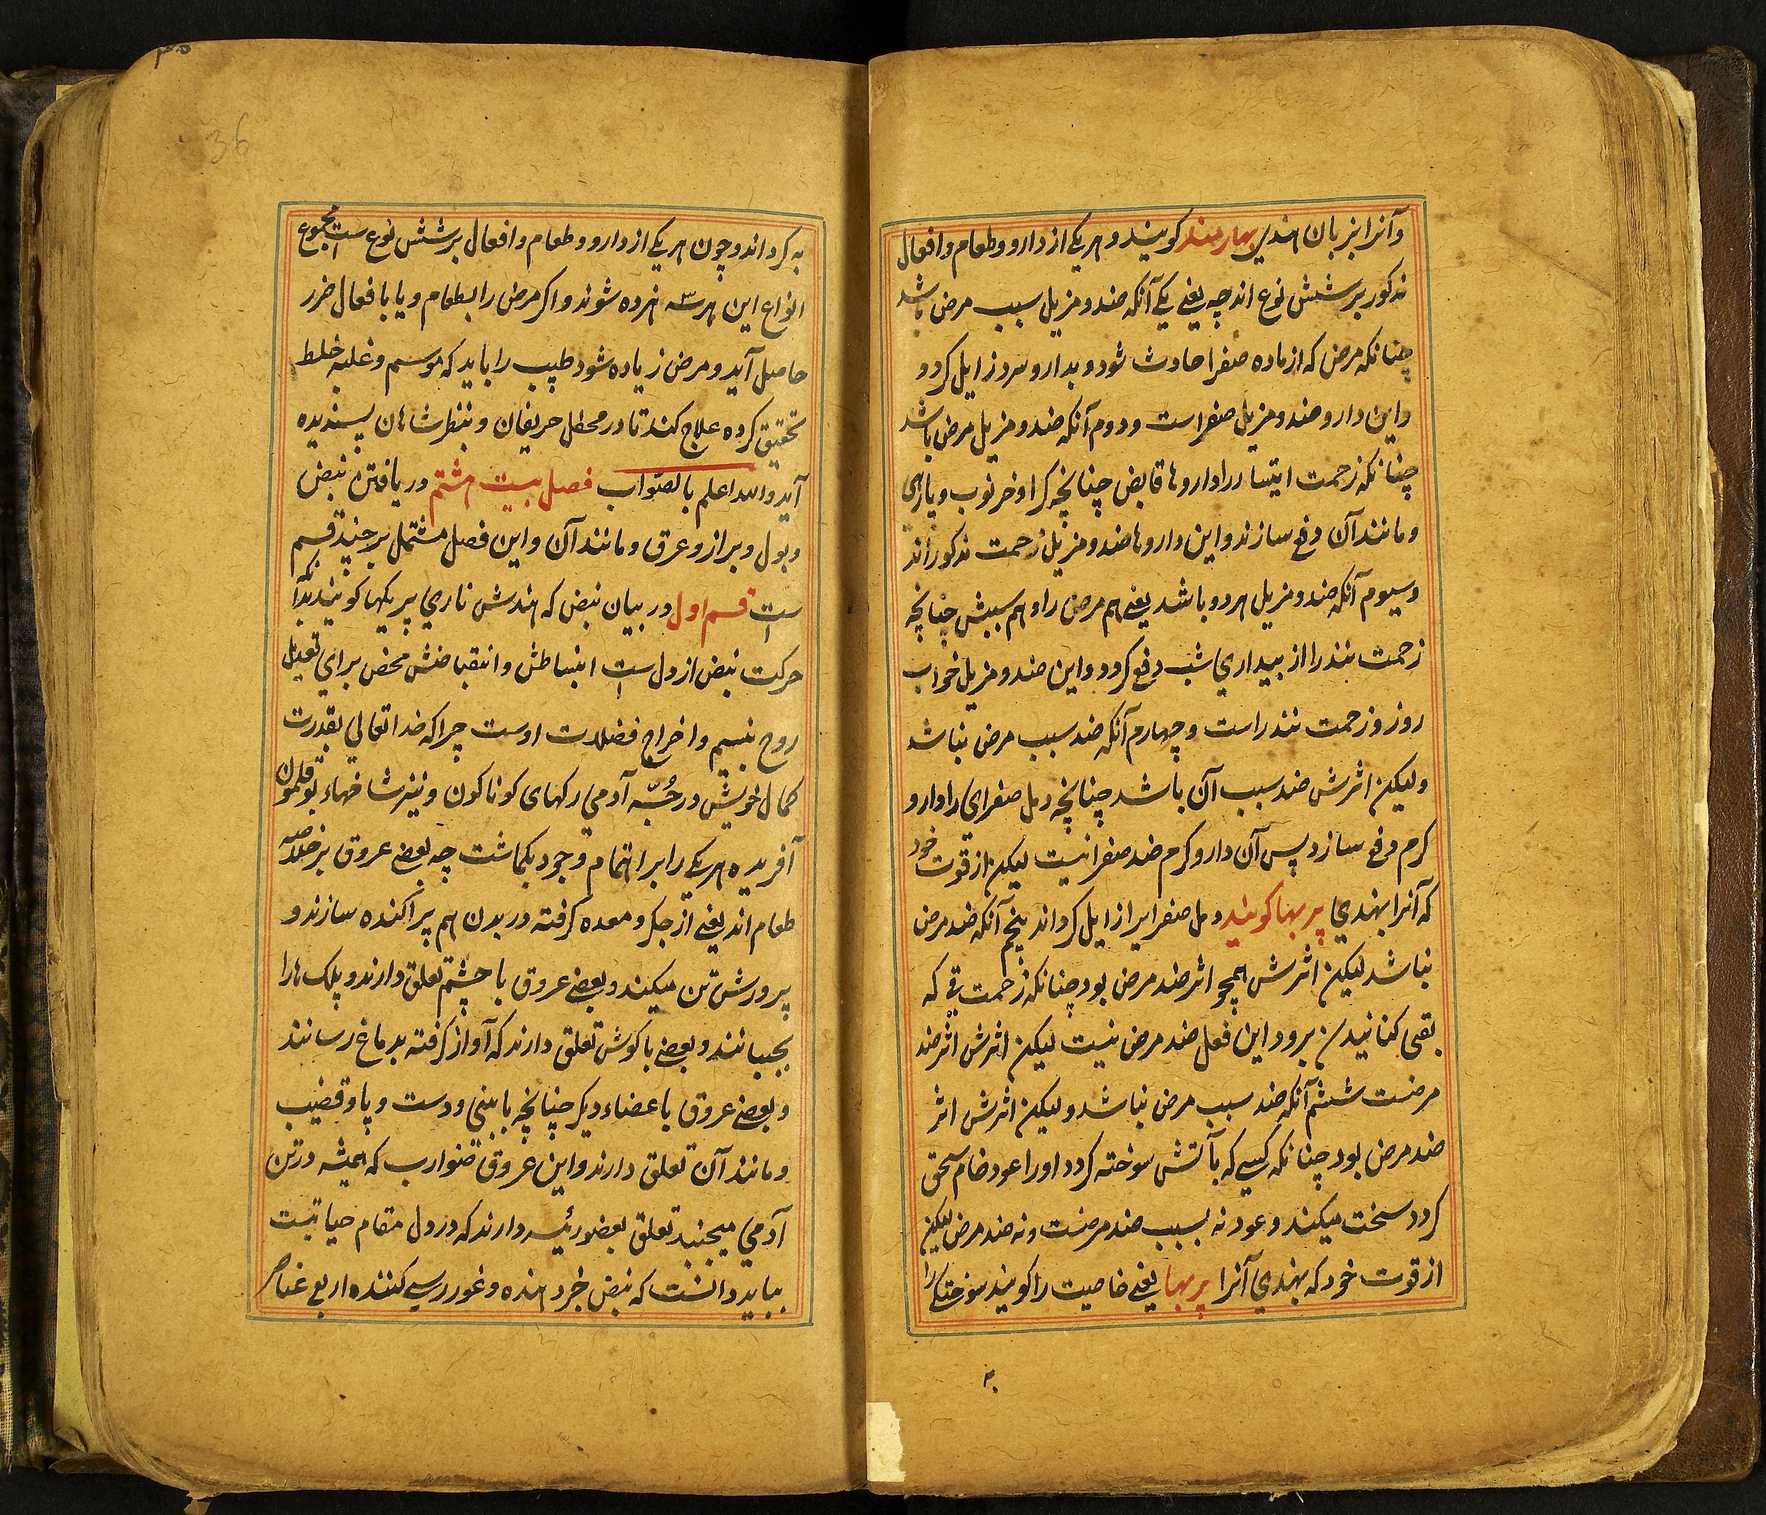 وآنرا بزبان هندی بهارمند کویند و هر یکے از دارو و طعام و افعال
مذکور بر شش نوع اند چه یعنے یکے آنکه ضد و مزیل سبب مرض باشد
چنانکه مرض که از ماده صفرا حادث شود و بداروء سرد زایل کردد
واین دارو ضد و مزیل صفراست و دوم آنکه ضد و مزیل مرض باشد
چنانکه زحمت ایتسار را داروها قابض چنانچه کرا و خرنوب و پاژهی
و مانند آن دفع سازند و این داروها ضد و مزیل زحمت مذکور اند
و سیوم آنکه ضد و مزیل هر دو باشد یعنے هم مرض را و هم سببش چنانچه
زحمت تندرا از بیداري شب دفع کردد و این ضد و مزیل خواب
روز و زحمت تندراست و چهارم آنکه ضد سبب مرض نباشد
ولیکن اثرش ضد سبب آن باشد چنانچه دمل صفرای را دارو
کرم دفع سازد پس آن دارو کرم ضد صفرا نیست لیکن از قوت خود
که آنرا بهندي پربهاکویند دمل صفرا را زایل کرداند پنجم آنکه ضد مرض
نباشد لیکن اثرش همچو اثر ضد مرض بود چنانکه زحمت قے که
بقی کنانیدن برود این فعل ضد مرض نیست لیکن اثرش اثر ضد
مرضست ششم آنکه ضد سبب مرض نباشد ولیکن اثرش اثر
ضد مرض بود چنانکه کسے که بآتش سوخته کردد اورا عود خام سحق
کردد سخت میکند و عود نه بسبب ضد مرضست و نه ضد مرض لیکن
از قوت خود که بهندي آنرا پربها یعنے خاصیت را کویند سوختکے را
به
36
به کرداند و چون هر یکے از دارو و طعام و افعال بر شش نوع است مجموع
انواع این هر سه هژده شوند و اکر مرض را بطعام و یا بافعال ضرر
حاصل آید و مرض زیاده شود طبیب را باید که موسم و غلبه خلط
تحقیق کرده علاج کند تا در محفل حریفان و بنظر شاهان پسندیده
آید والله اعلم بالصواب فصل بیست هشتم در یافتن نبض
و بول و براز و عرق و مانند آن و این فصل مشتمل بر چند قسم
است قسم اول در بیان نبض که هندش ناري پریکها کویند بدآنکه
حرکت نبض از دل است انبساطش و انقباضش محض برای تعدیل
روح بنسیم و اخراج فضلات اوست چرا که خداتعالي بقدرت
کمال خویش در جثه آدمي رکهای کوناکون و نیز شاخهاء بوقلمون
آفریده هر یکے را برا اهتمام وجود بکماشت چه بعضے عروق بر خلاصه
طعام اند یعنے از جکر و معده کرفته در بدن هم پراکنده سازند و
پرورش تن میکنند و بعضے عروق با چشم تعلق دارند و پلک ها را
بجنبانند و بعضے با کوش تعلق دارند که آواز کرفته بدماغ رسانند
و بعضے عروق با عضاء دیکر چنانچه با بینی و دست و پا و قضیب
و مانند آن تعلق دارند و این عروق ضنوارب که همیشه در تن
آدمي میجنبد تعلق بعضو رئیسه دارند که در دل مقام حیاتیست
بباید دانست که نبض خبر دهنده و غور رسے کننده اربع عناصر